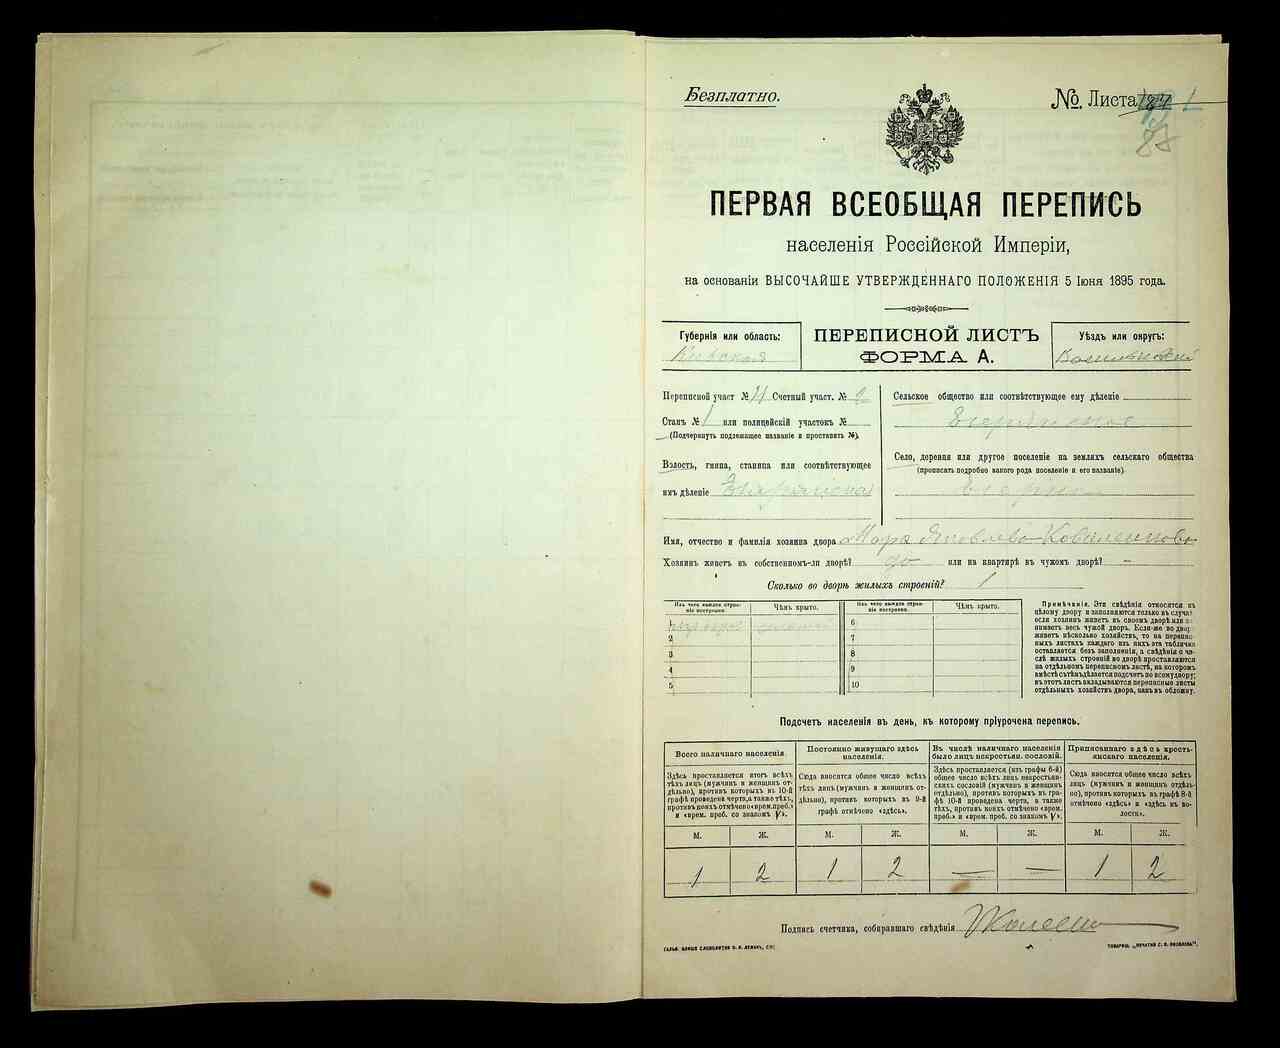 Безплатно.
№ Листа
88
ПЕРВАЯ ВСЕОБЩАЯ ПЕРЕПИСЬ
населенія Россійской Имперіи,
на основаніи ВЫСОЧАЙШЕ УТВЕРЖДЕННАГО ПОЛОЖЕНІЯ 5 Іюня 1895 года.
Губернія или область:
Кіевская
ПЕРЕПИСНОЙ ЛИСТЪ
ФОРМА А.
Уѣздъ или округъ:
Васильковскій
Переписной участ № 4 Счетный участ. № 2
Станъ № 1 или полицейскій участокъ №
(Подчеркнуть подлежащее названіе и проставить №).
Волость, гмина, станица или соотвѣтствующее
имъ дѣленіе
Сельское общество или соотвѣтствующее ему дѣленіе
Село, деревня или другое поселеніе на земляхъ сельскаго общества
(прописать подробно какого рода поселеніе и его названіе).
Имя, отчество и фамилія хозяина двора Марк Яковлево Коваленково
Хозяинъ живетъ въ собственномъ-ли дворѣ? да или на квартирѣ въ чужомъ дворѣ? —
Сколько во дворѣ жилыхъ строеній? 1
Изъ чего каждое строеніе построено.
Чѣмъ крыто.
Изъ чего каждое строеніе построено.
Чѣмъ крыто.
1
2
3
4
5
6
7
8
9
10
Примѣчанія. Эти свѣдѣнія относятся къ
цѣлому двору и заполняются только въ случаѣ
если хозяинъ живетъ въ своемъ дворѣ или
нимаетъ весь чужой дворъ. Если-же во двор
живетъ нѣсколько хозяйствъ, то на перепис
ныхъ листахъ каждаго изъ нихъ эта табличка
оставляется безъ заполненія, а свѣдѣнія о чи-
слѣ жилыхъ строеній во дворѣ проставляются
на отдѣльномъ переписномъ листѣ, на которомъ
вмѣстѣ съ тѣмъ дѣлается подсчетъ по всему двору;
въ этотъ листъ вкладываются переписные листы
отдѣльныхъ хозяйствъ двора, какъ въ обложку.
Подсчетъ населенія въ день, къ которому пріурочена перепись.
Всего наличнаго населенія.
Здѣсь проставляется итогъ всѣхъ
лицъ (мужчинъ и женщинъ от-
дѣльно), противъ которыхъ въ 10-й
графѣ проведена черта, а также тѣхъ,
противъ коихъ отмѣчено «врем. преб.»
и «врем. преб. со знакомъ V».
Постоянно живущаго здѣсь
населенія.
Сюда вносится общее число всѣхъ
тѣхъ лицъ (мужчинъ и женщинъ от-
дѣльно), противъ которыхъ въ 9-й
графѣ отмѣчено «здѣсь».
Въ числѣ наличнаго населенія
было лицъ некрестьян. сословій.
Здѣсь проставляется (изъ графы 6-й)
общее число всѣхъ лицъ некрестьян-
скихъ сословій (мужчинъ и женщинъ
отдѣльно), противъ которыхъ въ гра-
фѣ 10-й проведена черта, а также
тѣхъ, противъ коихъ отмѣчено «врем.
преб.» и «врем. преб. со знакомъ V».
Приписаннаго здѣсь кресть-
янскаго населенія.
Сюда вносится общее число всѣхъ
лицъ (мужчинъ и женщинъ отдѣль-
но), противъ которыхъ въ графѣ 8-й
отмѣчено «здѣсь» и «здѣсь въ во-
лости».
М. Ж. М. Ж. М. Ж. М. Ж.
1 2 1 2 — — 1 2
Подпись счетчика, собиравшаго свѣдѣнія